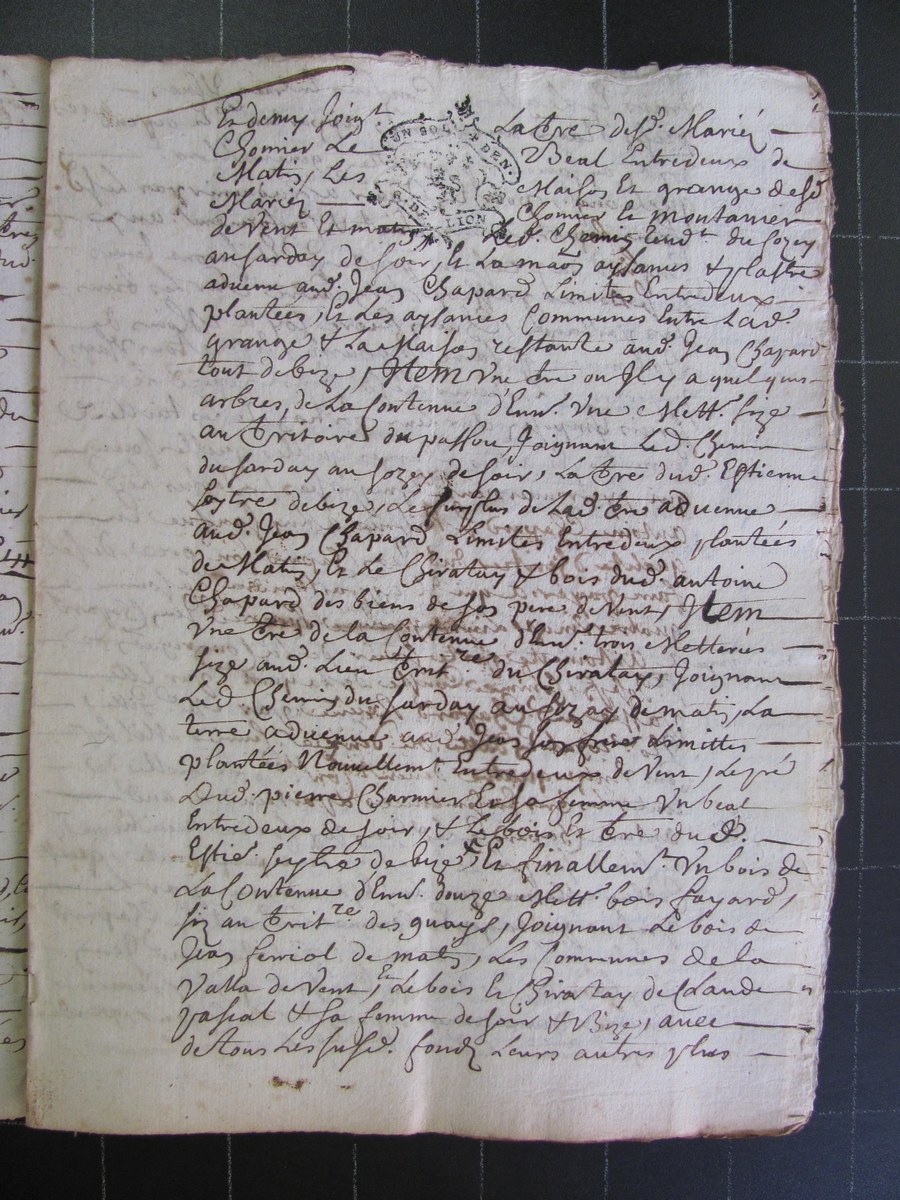 Et demy Joig.t La tre des.d Mariés
Chomier Le Béal Entredeux de
Matin, Les Maison Et grange desd.
Mariés Chomier Et montanier
UN SOL DEN.
G. DE LION
de Vent Et matin Led. Chemin du Sozey
au Sarday de Soir, Et La maõn aysances & plastre
advenue aud. Jean Chapard Limites Entredeux
plantées, Et Les aysances Communes Entre Lad.
grange & La Maison restante aud. Jean Chapard
tout de bize, Item Une tre ou Il y a quelques
arbres, de La Contenue d'Env. Une Mett. size
au territoire du passou, Joignant Led. Chemin
du Sarday au Sozey de Soir, La tre dud. Estienne
Seytre de bize, Le Surplus de Lad. tre advenue
aud. Jean Chapard Limites Entredeux plantées
de Matin, Et Le Chiratay & bois dud. antoine
Chapard des biens de son pere de Vent, Item
Une tre de la Contenue d'Env. trois Metterés
size aud. Lieu territ.re du Chiratay, Joignant
Led. Chemin du Sarday au Sozay de matin, La
terre advenue aud. Jean son frere Limittes
plantées Nouvellem.t Entredeux de Vent, Le pré
dud. pierre Charmier Et sa femme Un beal
Entredeux de soir, & Le bois Et tre dud.
Estie. Seytre de bize, Et finallem.t Un bois de
La Contenue d'Env. douze Mett. bois fayard,
siz au territ.re des quays, Joignant Le bois de
Jean ferriol de matin, Les Communes de la
Valla de Vent, Et Le bois Et Chiratay de Claude
pascal & sa femme de soir & Bize, avec
de tous Les susd. fondz Leurs autres plus